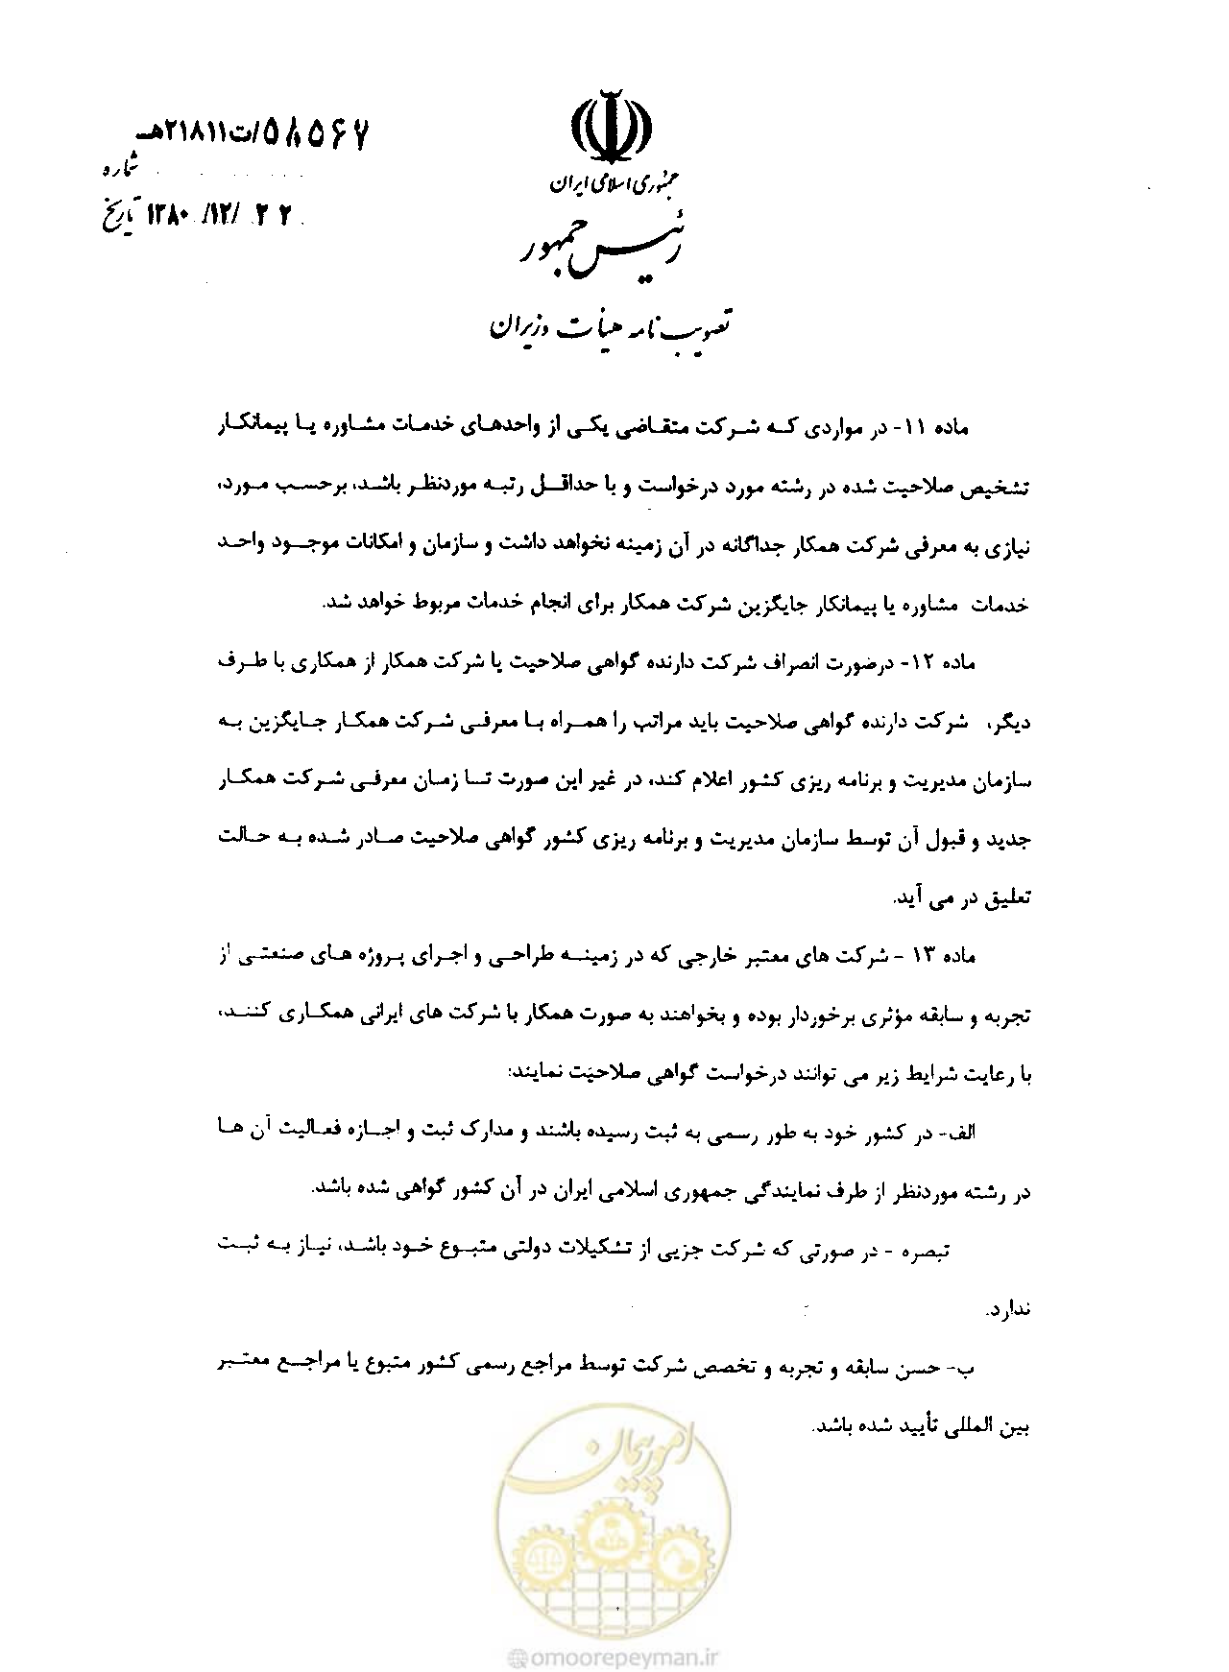 ۵۸۵۶۷/ت۲۱۸۱۱هـ
شماره
تاریخ ۲۲/۱۲/۱۳۸۰
جمهوری اسلامی ایران
رئیس جمهور
تصویب نامه هیأت وزیران
ماده ۱۱- در مواردی که شرکت متقاضی یکی از واحدهای خدمات مشاوره یا پیمانکار
تشخیص صلاحیت شده در رشته مورد درخواست و با حداقل رتبه موردنظر باشد، برحسب مورد،
نیازی به معرفی شرکت همکار جداگانه در آن زمینه نخواهد داشت و سازمان و امکانات موجود واحد
خدمات مشاوره یا پیمانکار جایگزین شرکت همکار برای انجام خدمات مربوط خواهد شد.
ماده ۱۲- درصورت انصراف شرکت دارنده گواهی صلاحیت یا شرکت همکار از همکاری با طرف
دیگر، شرکت دارنده گواهی صلاحیت باید مراتب را همراه با معرفی شرکت همکار جایگزین به
سازمان مدیریت و برنامه ریزی کشور اعلام کند، در غیر این صورت تا زمان معرفی شرکت همکار
جدید و قبول آن توسط سازمان مدیریت و برنامه ریزی کشور گواهی صلاحیت صادر شده به حالت
تعلیق در می آید.
ماده ۱۳ - شرکت های معتبر خارجی که در زمینه طراحی و اجرای پروژه های صنعتی از
تجربه و سابقه مؤثری برخوردار بوده و بخواهند به صورت همکار با شرکت های ایرانی همکاری کنند،
با رعایت شرایط زیر می توانند درخواست گواهی صلاحیت نمایند:
الف- در کشور خود به طور رسمی به ثبت رسیده باشند و مدارک ثبت و اجازه فعالیت آن ها
در رشته موردنظر از طرف نمایندگی جمهوری اسلامی ایران در آن کشور گواهی شده باشد.
تبصره - در صورتی که شرکت جزیی از تشکیلات دولتی متبوع خود باشد، نیاز به ثبت
ندارد.
ب- حسن سابقه و تجربه و تخصص شرکت توسط مراجع رسمی کشور متبوع یا مراجع معتبر
بین المللی تأیید شده باشد.
امور پیمان
@omoorepeyman.ir